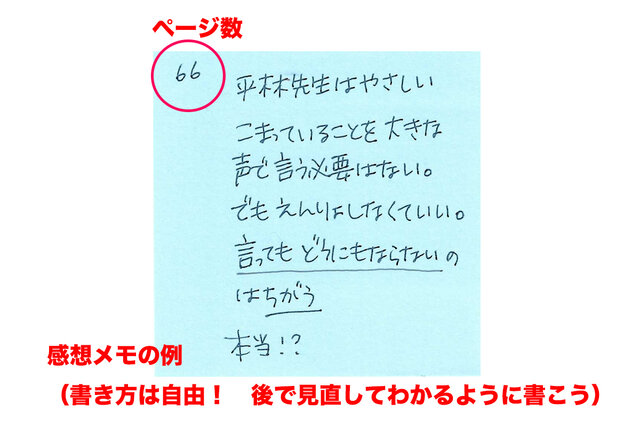 ページ数
66
平林先生はやさしい
こまっていることを大きな
声で言う必要はない。
でもえんりょしなくていい。
言ってもどうにもならないの
はちがう
本当!?
感想メモの例
（書き方は自由！　後で見直してわかるように書こう）